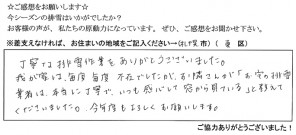 ☆ご感想をお願いします☆
今シーズンの排雪はいかがでしたか?
お客様の声が、私たちの原動力になっています。ぜひ、ご感想をお聞かせ下さい。
※差支えなければ、お住まいの地域をご記入ください→(札幌市)( 区)
丁寧な排雪作業をありがとうございました。
我が家は、毎度毎度不在でしたが、お隣さんが「お宅の排雪
業者は、本当に丁寧で、いつも感心して窓から見ている」と教えて
くださいました。今年度もよろしくお願いします。
ご協力ありがとうございました!